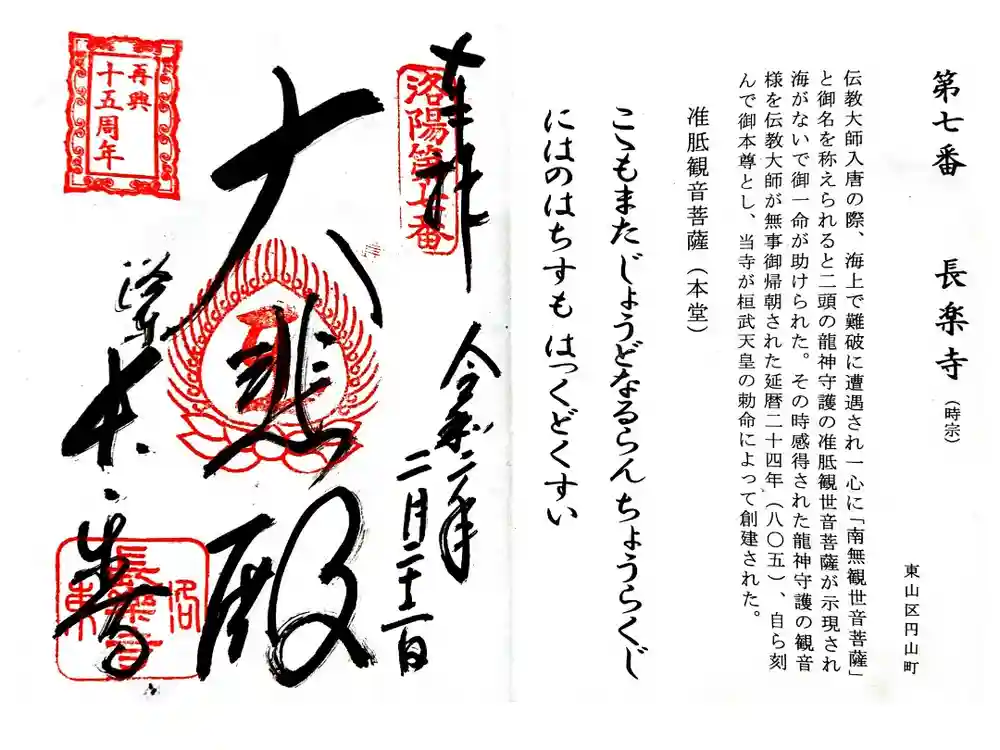 第七番 長楽寺(時宗)
東山区円山町
伝教大師入唐の際、海上で難破に遭遇され一心に「南無観世音菩薩」
と御名を称えられると二頭の龍神守護の准胝観世音菩薩が示現され
海がないで御一命が助けられた。その時感得された龍神守護の観音
様を伝教大師が無事御帰朝された延暦二十四年(八〇五)、自ら刻
んで御本尊とし、当寺が桓武天皇の勅命によって創建された。
准胝観音菩薩(本堂)
こゝもまた じょうどなるらん ちょうらくじ
にはのはちすも はっくどくすい
奉拝
洛陽第七番
令和二年
二月二十二日
大悲殿
再興
十五周年
洛東
長楽寺
洛東
長楽寺